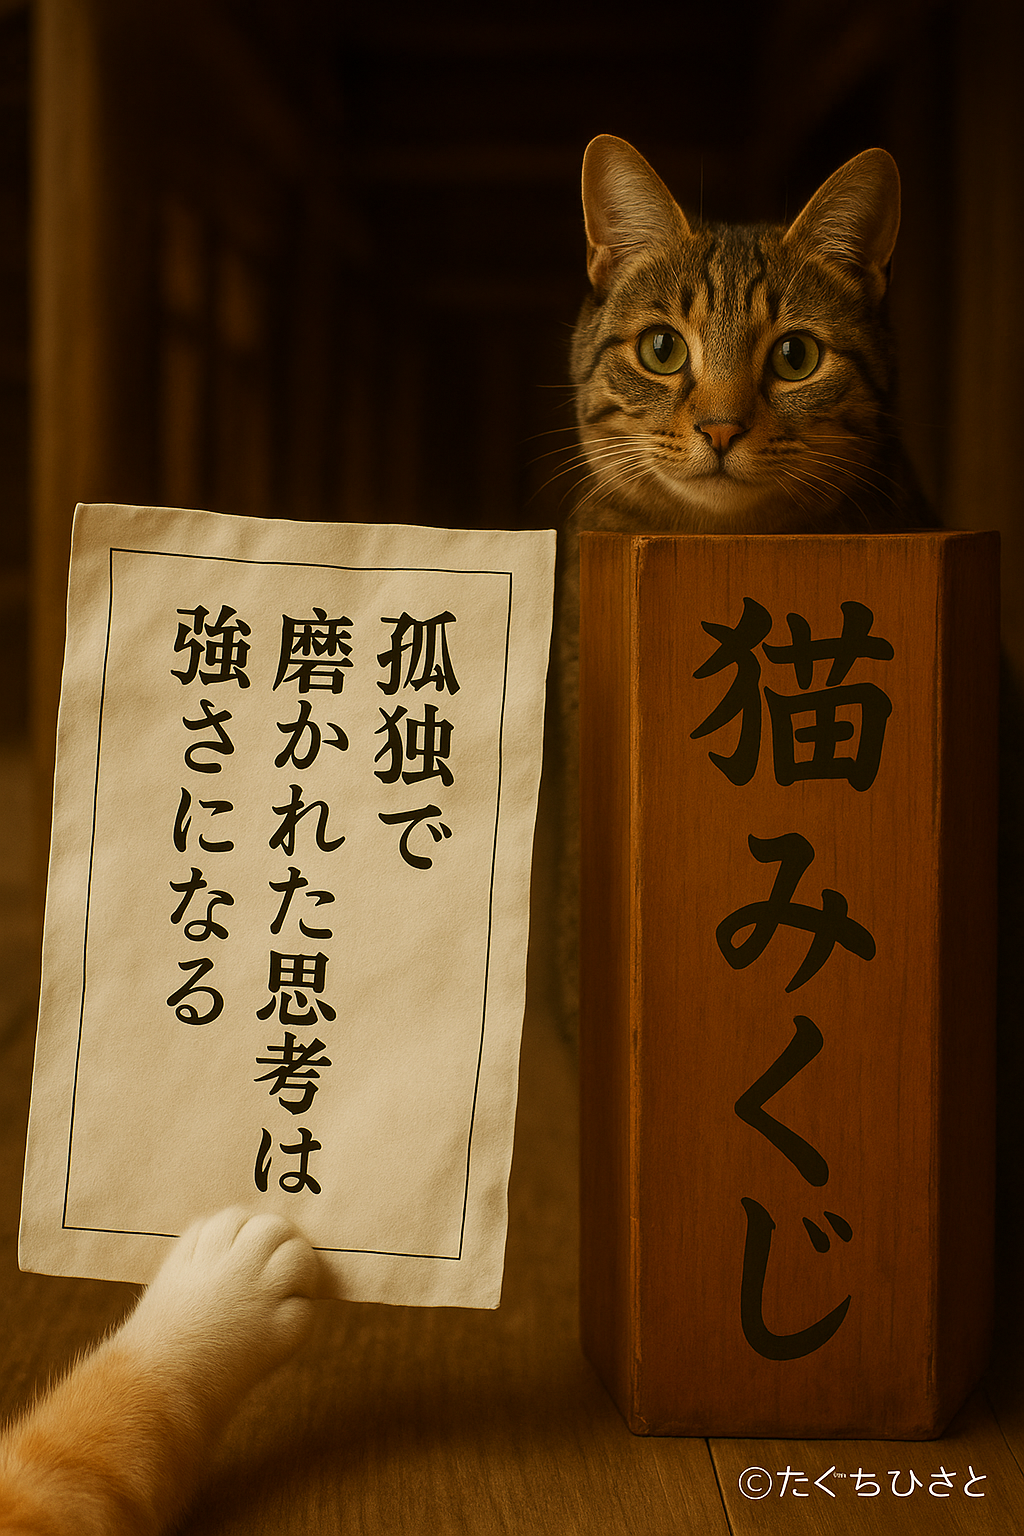 孤独で
磨かれた思考は
強さになる
猫みくじ
©たぐちひさと